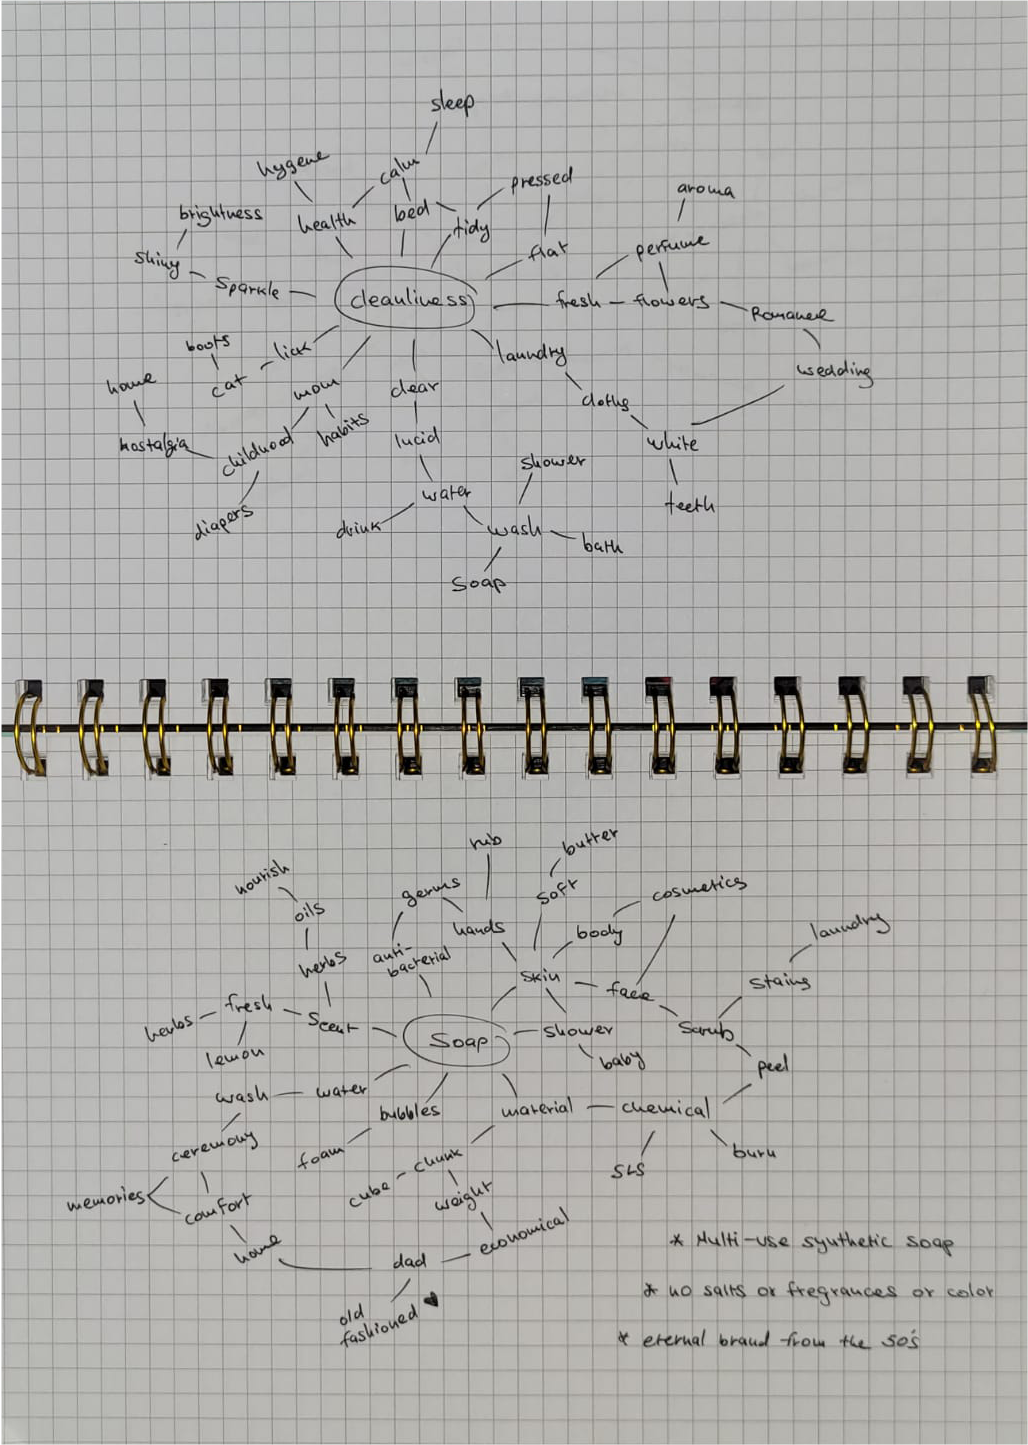 sleep
hygene
calm
pressed
aroma
brightness
health
bed
tidy
shiny
sparkle
flat
perfume
cleanliness
fresh
flowers
Romance
boots
lick
laundry
wedding
home
cat
mom
clear
cloths
nostalgia
childhood
habits
lucid
white
shower
diapers
water
teeth
drink
wash
bath
Soap
rub
butter
nourish
germs
soft
cosmetics
oils
hands
body
laundry
herbs
anti-
bacterial
skin
face
stains
herbs
fresh
Scent
Soap
shower
Scrub
lemon
baby
peel
wash
water
bubbles
material
chemical
ceremony
foam
chunk
SLS
burn
memories
comfort
cube
weight
home
dad
economical
old
fashioned
* Multi-use synthetic soap
* no salts or fregrances or color
* eternal brand from the 50's